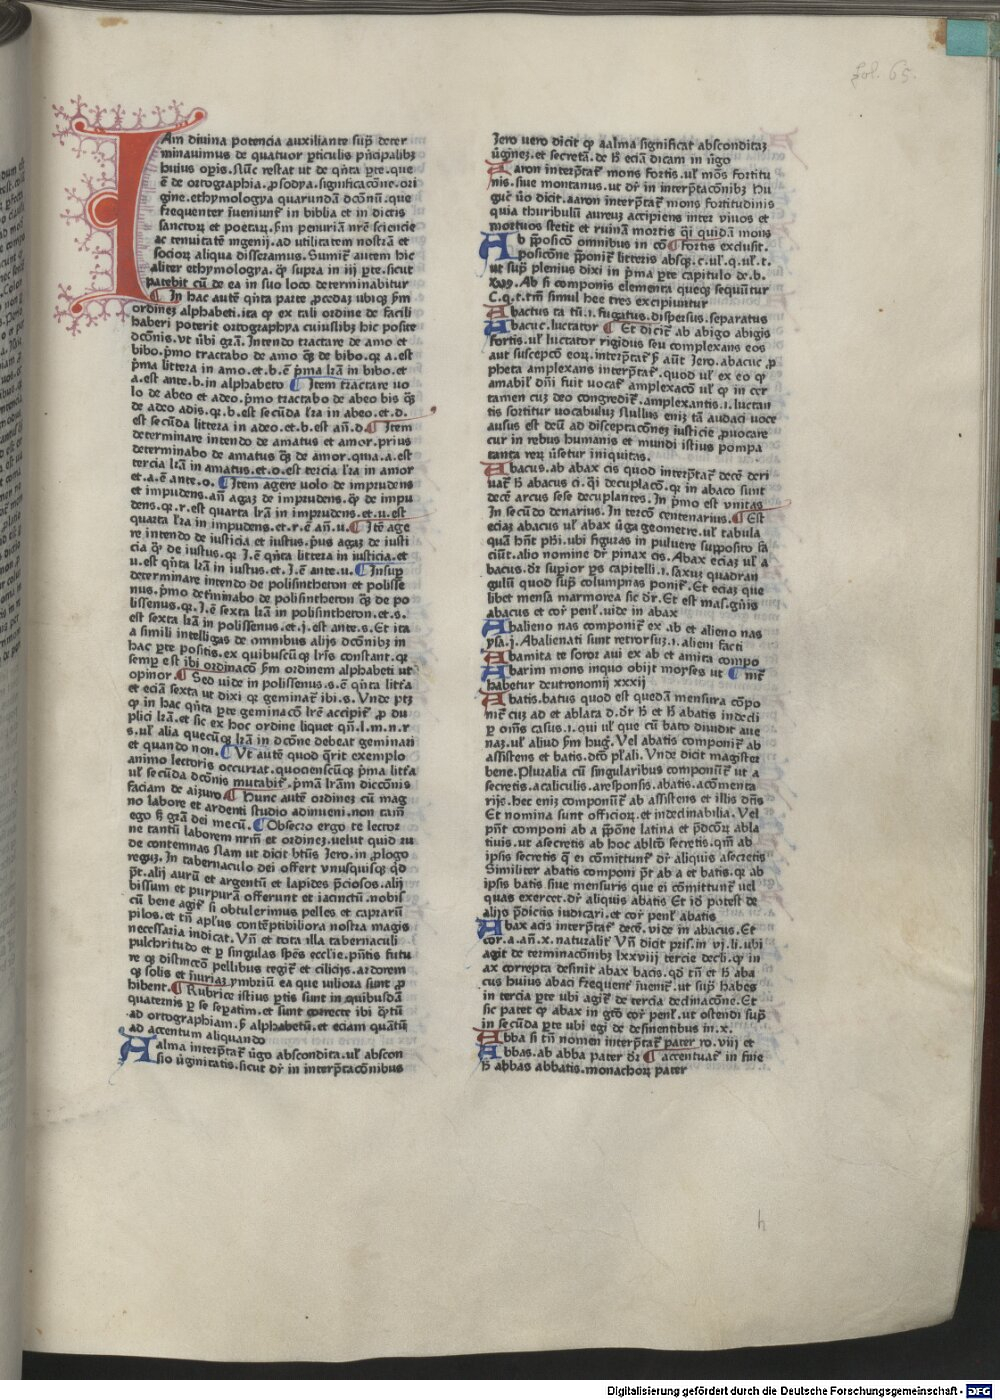 fol. 65.
IAm diuina potencia auxiliante sup̄ deter
minauimus de quatuor ꝑticulis p̄ncipalibꝫ
huius opis. Nūc restat ut de q̄nta ꝑte. que
ē de ortographia. ꝓsodya. significacōne. ori
gine. ethymologya quarundā dcōnū. que
frequenter īueniunt̄ in biblia et in dictis
sanctoꝝ et poetaꝝ. ẜm penuriā nrē sciencie
ac tenuitatē ingenij. ad utilitatem nostrā et
socioꝝ aliqua disseramus. Sumit̄ autem hic
aliter ethymologya. qͥ supra in iij ꝑte. sicut
patebit cū de ea in suo loco determinabitur
In hac autē q̄nta parte ꝓcedaꝫ ubiqꝫ ẜm
ordineꝫ alphabeti. ita qͥ ex tali ordine de facili
haberi poterit ortographya cuiuslibꝫ hic posite
dcōnis. vt ūbi grā. Intendo tractare de amo et
bibo. p̄mo tractabo de amo qꝫ de bibo. qꝛ a. est
p̄ma littera in amo. et. b. ē p̄ma lrā in bibo. et
a. est ante. b. in alphabeto Item tractare uo
lo de abeo et adeo. p̄mo tractabo de abeo bis qꝫ
de adeo adis. qꝛ. b. est secūda lra in abeo. et. d.
est secūda littera in adeo. et. b. est añ. d. Item
determinare intendo de amatus et amor. prius
determinabo de amatus qꝫ de amor. quia. a. est
tercia lrā in amatus. et. o. est tercia lra in amor
et. a. ē ante. o. Item agere uolo de imprudens
et impudens. añ agaꝫ de imprudens. qͥ de impu
dens. qꝛ. r. est quarta lrā in imprudens. et. u. est
quarta lra in impudens. et. r. ē añ. u. Itē age
re intendo de iusticia et iustus. p̄us agaꝫ de iusti
cia qͥ de iustus. qꝛ. i. ē q̄nta littera in iusticia. et
u. est q̄nta lrā in iustus. et. i. ē ante. u. Insup
determinare intendo de polisintheton et polisse
nus. p̄mo definiabo de polisintheton qꝫ de po
lissenus. qꝛ. i. ē sexta lrā in polisintheton. et. s.
est sexta lrā in polissenus. et. i. est ante. s. Et ita
a simili intelligas de omnibus alijs dcōnibꝫ in
hac ꝑte positis. ex quibuscūqꝫ lrīs constant. qꝛ
semꝑ est ibi ordinacō ẜm ordinem alphabeti ut
opinor. Sed uide in polissenus. s. ē q̄nta litt̄a
et eciā sexta ut dixi qꝛ geminat̄ ibi. s. Vnde ptꝫ
qͥ in hac q̄nta ꝑte geminacō lrē accipit̄ ꝓ du
plici lrā. et sic ex hoc ordine liquet qñ. l. m. n. r
s. ul̄ alia quecūqꝫ lrā in dcōne debeat geminari
et quando non. Ut autē quod q̄rit exemplo
animo lectoris occurrat. quociensciūqꝫ p̄ma litt̄a
ul̄ secūda dcōnis mutabit̄. p̄mā lrām diccōnis
faciam de aizuro. Hunc autē ordineꝫ cū mag
no labore et ardenti studio adinueni. non tam̄
ego ẜ grā dei mecū. Obsecro ergo te lector
ne tantū laborem nrm̄ et ordineꝫ. uelut quid ru
de contemnas Nam ut dicit btūs Jero. in ꝓlogo
reguꝫ. In tabernaculo dei offert vnusquisqꝫ qd̄
p̄t. alij aurū et argentū et lapides p̄ciosos. alij
bissum et purpurā offerunt et iacinctū. nobis
cū bene agit̄ si obtulerimus pelles et caprarū
pilos. et tn̄ aplus contēptibiliora nostra magis
necessaria indicat. Vñ et tota illa tabernaculi
pulchritudo et ꝑ singulas spēs ecclie. p̄ntis futu
re qꝫ distincō pellibus tegit̄ et cilicijs. ardorem
qꝫ solis et īiuriaꝫ ymbriū ea que uiliora sunt ꝓ
hibent. Rubrice istius ꝑtis sunt in quibusdā
quaternis ꝑ se seꝑatim. et sunt correcte ibi qͥtū
ad ortographiam. ẜ alphabetū. et eciam quātū
ad accentum aliquando
Aalma interp̄tat̄ ūgo abscondita. ul̄ abscon
sio ūginitatis. sicut dr̄ in interp̄tacōnibus
Jero uero dicit qͥ aalma significat absconditaꝫ
ūgineꝫ. et secretā. de h̄ eciā dicam in ūgo
Aaron interp̄tat̄ mons fortis. ul̄ mōs fortitu
nis. siue montanus. ut dr̄ in interp̄tacōnibꝫ hu
guc̄ ūo dicit. aaron interp̄tat̄ mons fortitudinis
quia thuribulū aureuꝫ accipiens inter viuos et
mortuos stetit et ruinā mortis q̄i quidā mons
Ab p̄posicō omnibus in cō fortis exclusit.
posicōne p̄ponit̄ litteris absqꝫ. c. ul̄. q. ul̄. t.
ut sup̄ plenius dixi in p̄ma ꝑte capitulo de. b.
xvꝫ. Ab si componis elementa queqꝫ sequūtur
C. q. t. tm̄ simul hec tres excipiuntur
Abactus ta tū. i. fugatus. dispersus. separatus
Abacuc. luctator Et dicit̄ ab abigo abigis
fortis. ul̄ luctator rigidus seu complexans eos
aut susceptō eoꝝ. interp̄tat̄ ẜ aūt Jero. abacuc ꝓ
pheta amplexans interp̄tat̄. quod ul̄ ex eo qͥ
amabil̄ dn̄i fuit uocat̄ amplexacō ul̄ qͥ in cer
tamen cuꝫ deo congredit̄. amplexantis. i. luctan
tis sortitur uocabuluꝫ Nullus eniꝫ tā audaci uoce
ausus est deū ad disceptacōneꝫ iusticie ꝓuocare
cur in rebus humanis et mundi istius pompa
tanta reꝝ ūsetur iniquitas.
Abacus. ab abax cis quod interp̄tat̄ decē deri
uat̄ h̄ abacus ci. q̄i decuplacō. qꝛ in abaco sunt
decē arcus sese decuplantes. In p̄mo est vnitas
In secūdo denarius. In tercō centenarius. Est
eciaꝫ abacus ul̄ abax ūga geometre. ul̄ tabula
quā hn̄t ph̄i. ubi figuras in puluere supposito fa
ciūt. alio nomine dr̄ pinax cis. Abax eciaꝫ ul̄ a
bacus. dr̄ supior ps capitelli. i. saxuꝫ quadran
gulū quod sup̄ columpnas ponit̄. Et eciaꝫ que
libet mensa marmorea sic dr̄. Et est mas. gn̄is
abacus et cor̄ penl̄. uide in abax
Abalieno nas componit̄ ex ab et alieno nas
ysa. j. Abalienati sunt retrorsuꝫ. i. aliem facti
Abamita te soror aui ex ab et amita compo
Abarim mons inquo obijt moyses ut nit̄
habetur deutronomij xxxij
Abatis. batus quod est quedā mensura cōpo
nit̄ cuꝫ ad et ablata d. dr̄ h̄ et h̄ abatis indecli
ꝑ om̄s casus. i. qui ul̄ que cū bato diuidit aue
naꝫ. ul̄ aliud ẜm huḡ. Vel abatis componit̄ ab
assistens et batis. dcō pl̄ali. Vnde dicit magister
bene. Pluralia cū singularibus componūt̄ ut a
secretis. acaliculis. aresponsis. abatis. acomenta
rijs. hec eniꝫ componūt̄ ab assistens et illis dc̄is
Et nomina sunt officioꝝ. et indeclinabilia. Vel
pn̄t componi ab a p̄pōne latina et p̄dcōꝝ abla
tiuis. ut asecretis ab hoc ablcō secretis. qm̄ ab
ipsis secretis q̄ ei cōmittunt̄ dr̄ aliquis asecretis
Similiter abatis componi p̄t ab a et batis. qꝛ ab
ipsis batis siue mensuris que ei cōmittunt̄ uel
quas exercet. dr̄ aliquis abatis Et id̄o potest de
alijs p̄dictis iudicari. et cor̄ penl̄ abatis
Abax acis interp̄tat̄ decē. vide in abacus. Et
cor̄. a. añ. x. naturalit̄ Vñ dicit pris. in vj. li. ubi
agit de terminacōnibꝫ lxxviij tercie decli. qͥ in
ax correpta desinit abax bacis. qd̄ tn̄ et h̄ aba
cus huius abaci frequent̄ īuenit̄. ut sup̄ habes
in tercia ꝑte ubi agit̄ de tercia declinacōne. Et
sic patet qͥ abax in gtō cor̄ penl̄. ut ostendi sup̄
in secūda ꝑte ubi egi de desinentibus in. x.
Abba si tn̄ nomen interp̄tat̄ pater ro. viij et
Abbas. ab abba pater dr̄ accentuat̄ in fine
h̄ abbas abbatis. monachoꝝ pater
h
Digitalisierung gefördert durch die Deutsche Forschungsgemeinschaft - DFG